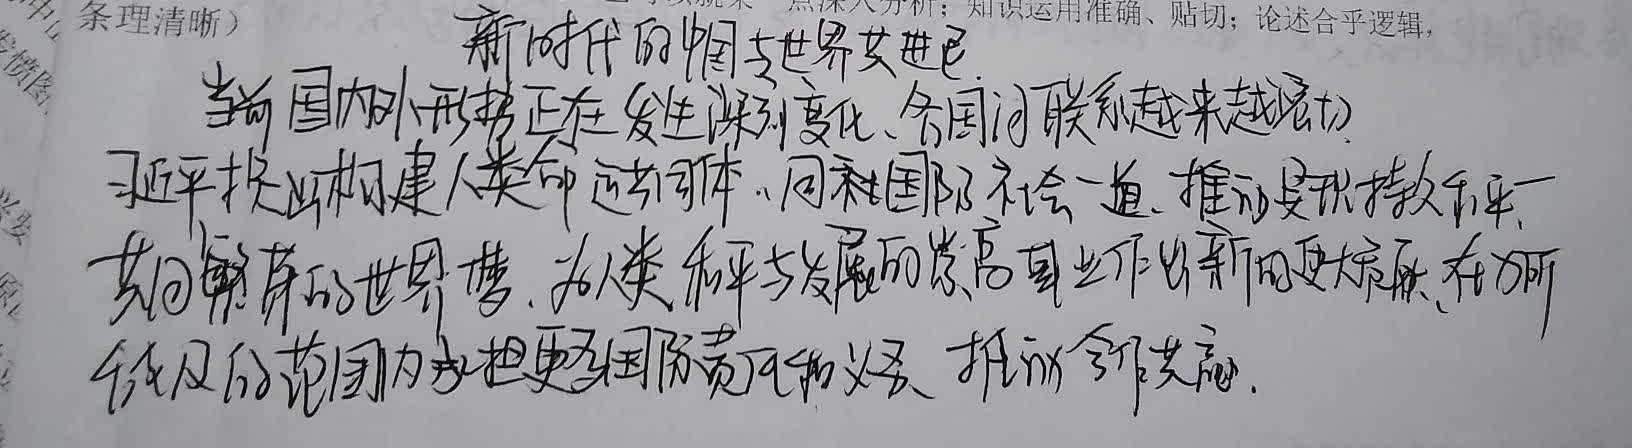 点深入分析；知识运用准确、贴切；论述合乎逻辑，
条理清晰）
新时代的中国与世界共进己
当前国内外形势正在发生深刻变化、各国间联系越来越密切
习近平提出构建人类命运共同体、同和国际社会一道、推动实现持久和平、
共同繁荣的世界梦、为人类和平与发展的崇高事业作出新的更大贡献、在力所
能及的范围内承担更多国际责任和义务、推动合作共赢.